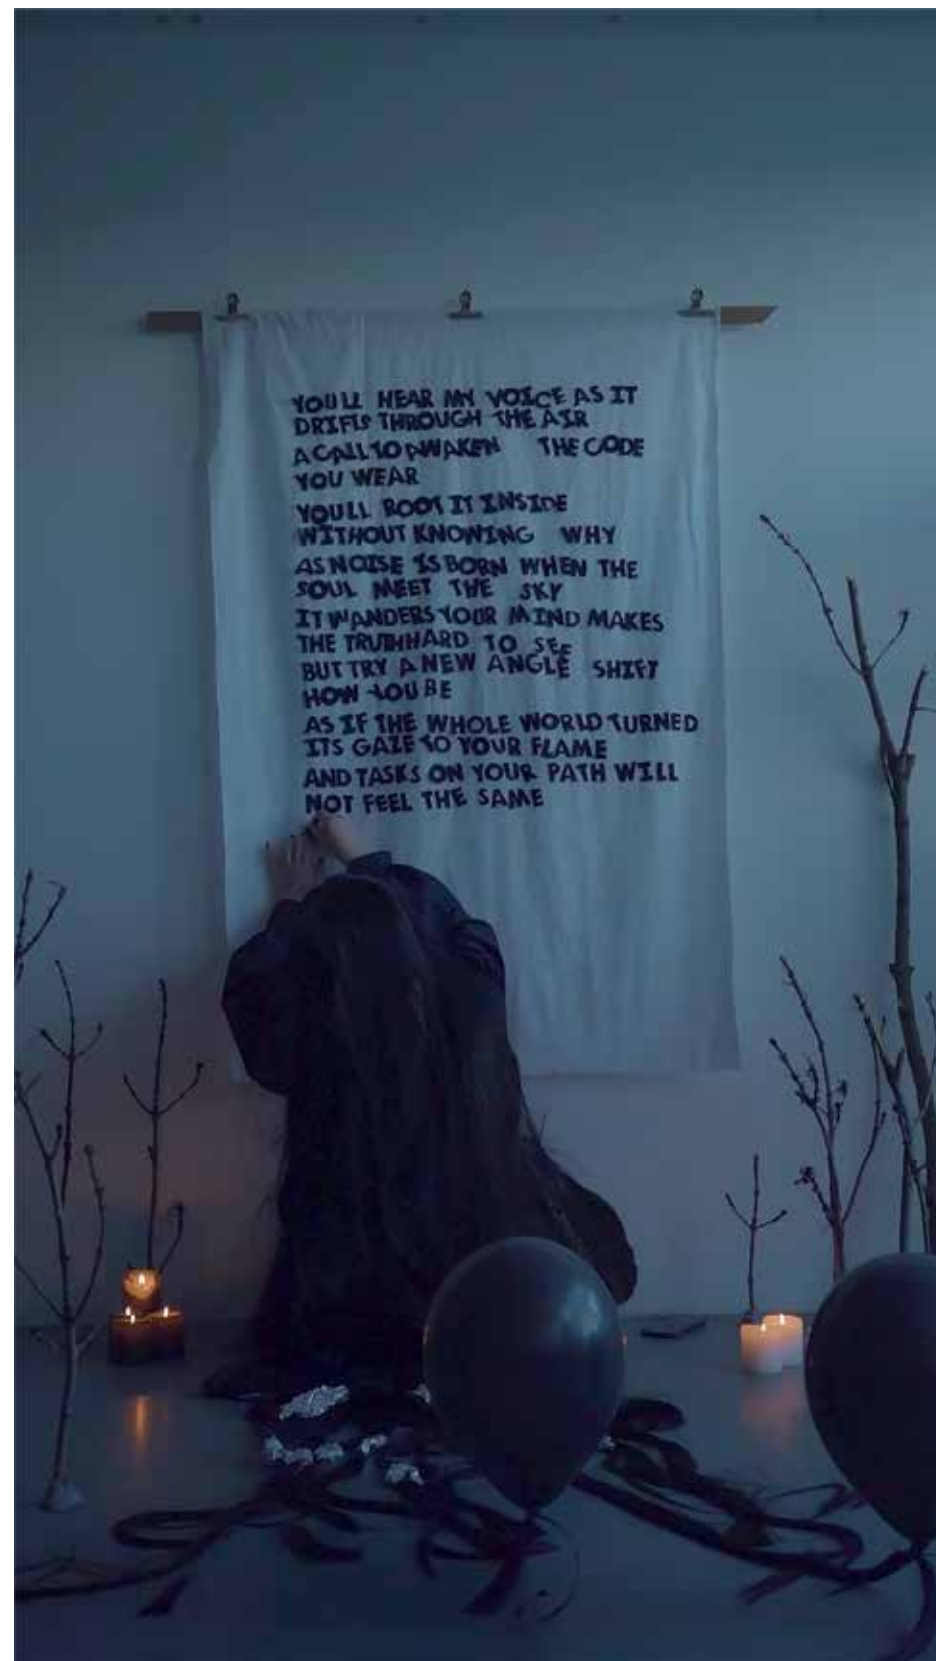 YOULL HEAR MY VOICE AS IT
DRIFTS THROUGH THE AIR
A CALL TO AWAKEN THE CODE
YOU WEAR
YOULL ROOT IT INSIDE
WITHOUT KNOWING WHY
AS NOISE IS BORN WHEN THE
SOUL MEET THE SKY
IT WANDERS YOUR MIND MAKES
THE TRUTH HARD TO SEE
BUT TRY A NEW ANGLE SHIFT
HOW YOU BE
AS IF THE WHOLE WORLD TURNED
ITS GAZE TO YOUR FLAME
AND TASKS ON YOUR PATH WILL
NOT FEEL THE SAME